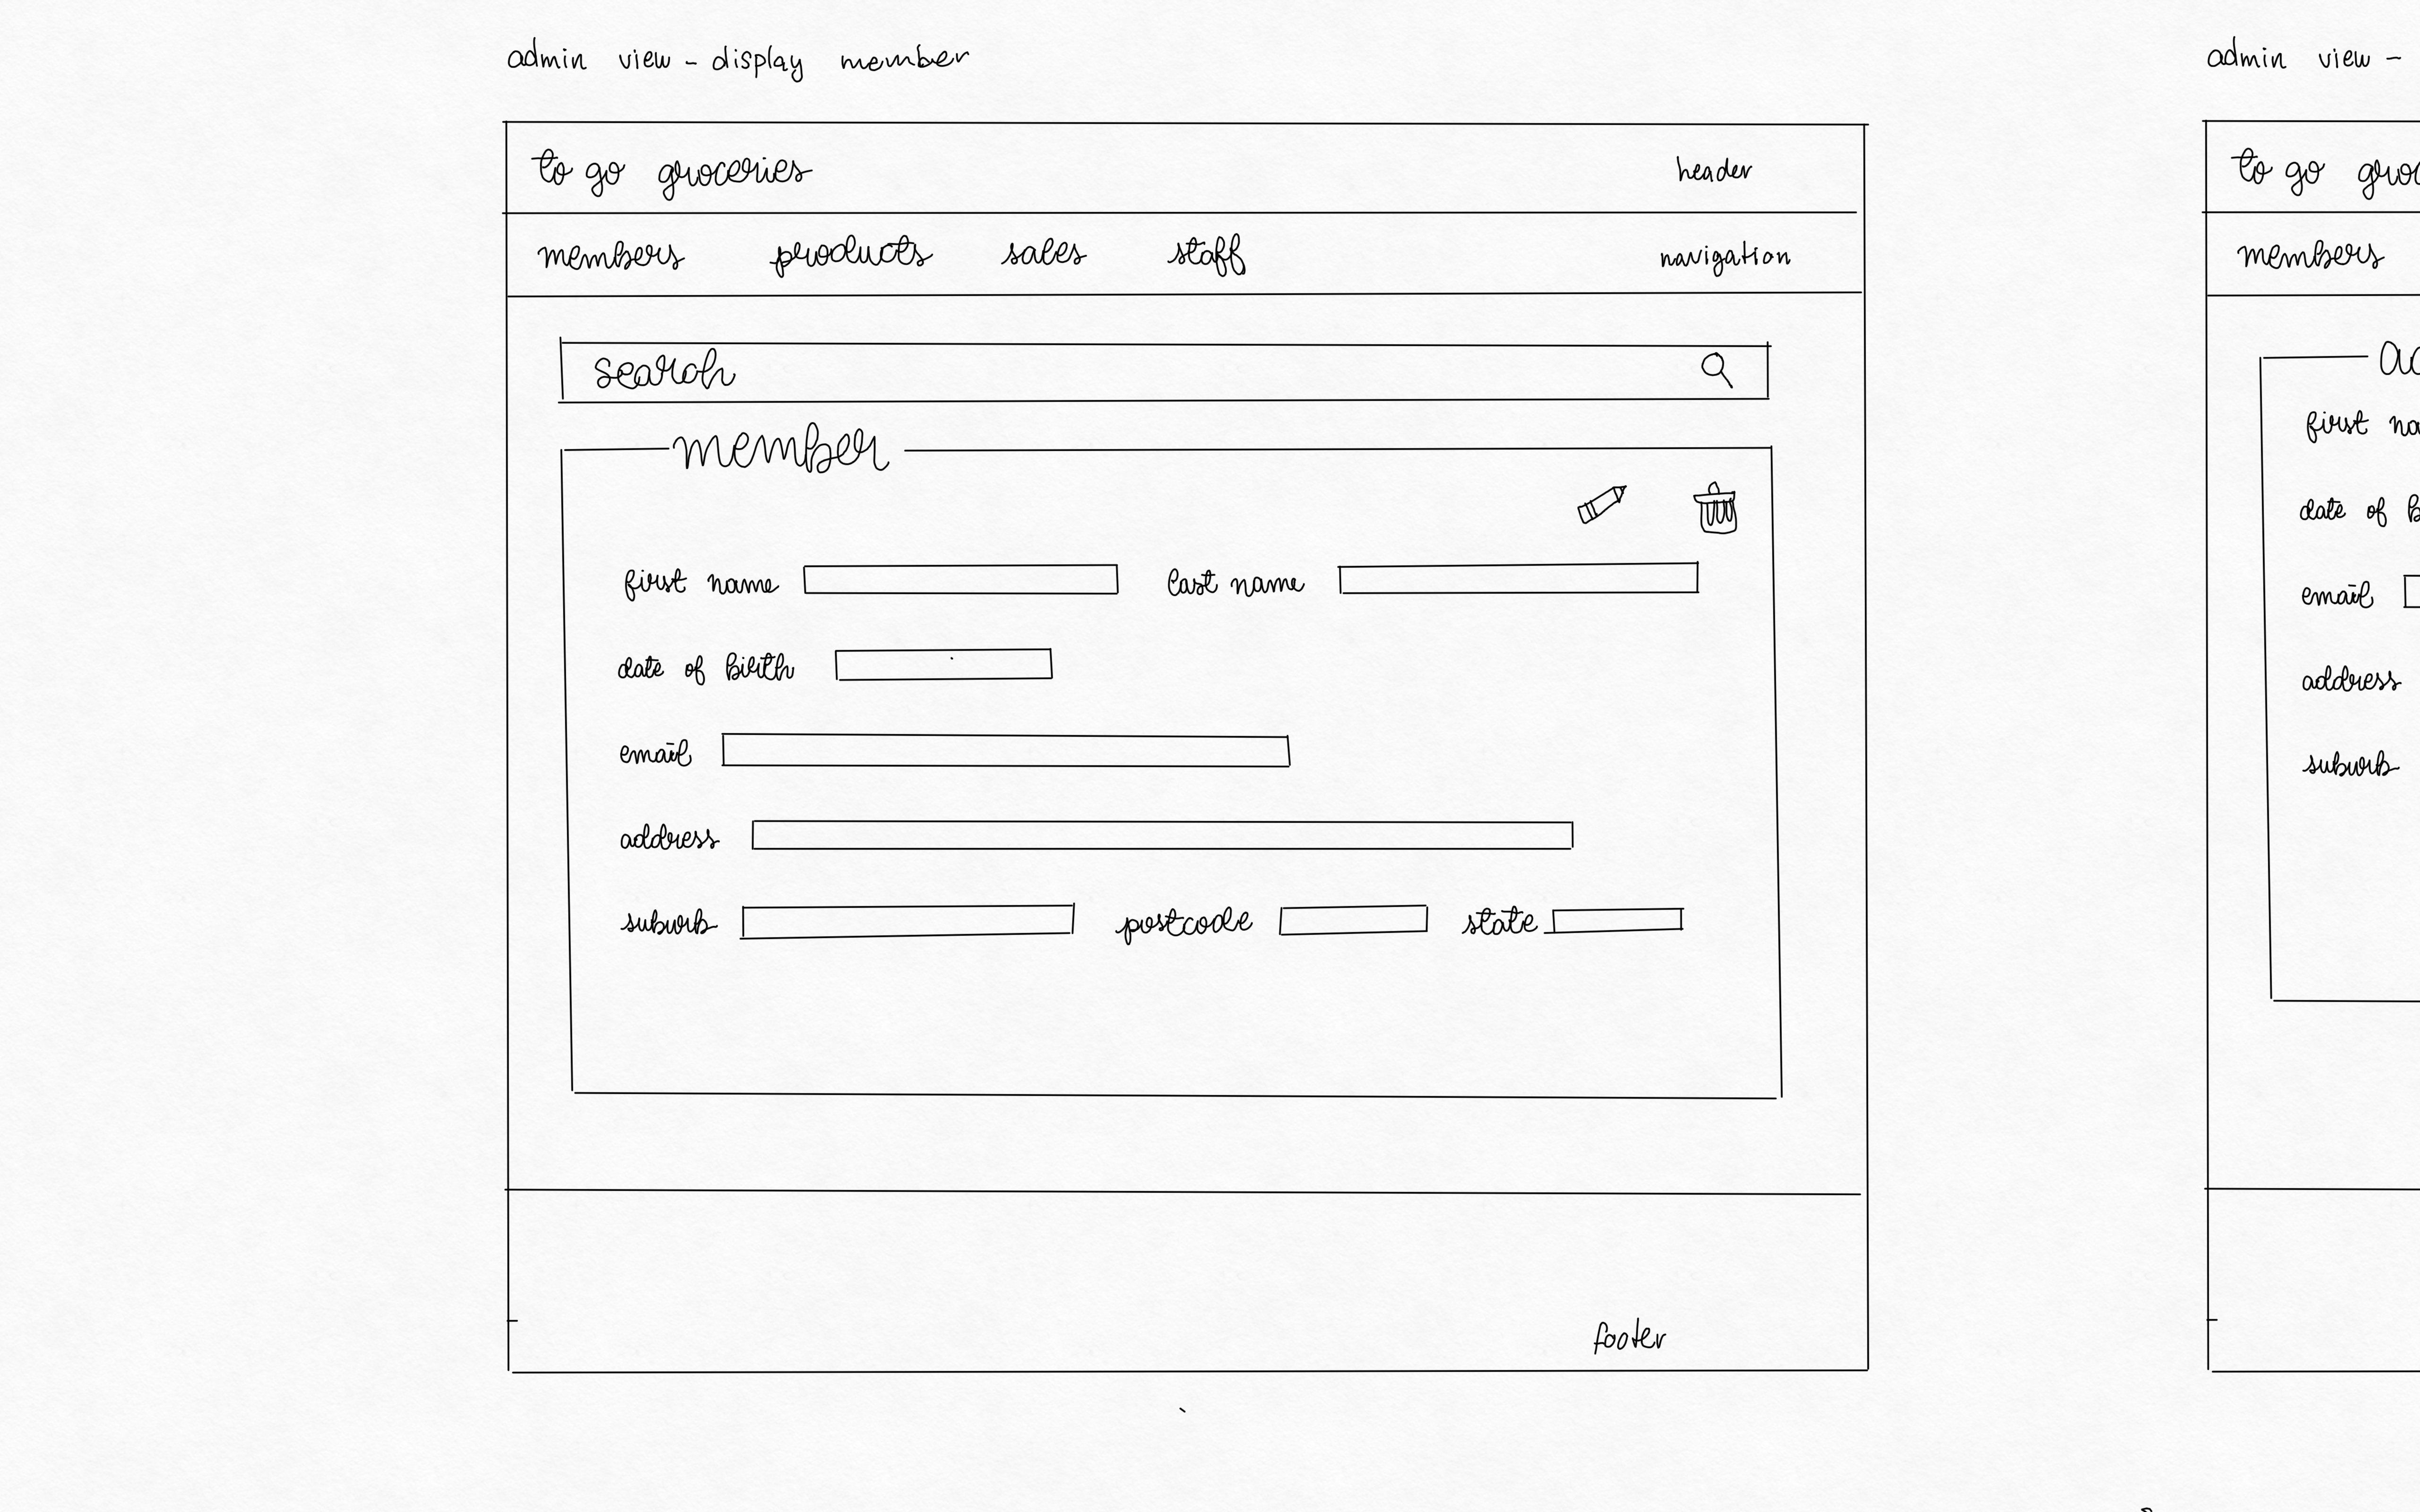 admin view - display member
to go groceries header
members products sales staff navigation
search
member
first name last name
date of birth
email
address
suburb postcode state
footer
admin view -
to go
members
first
date of
email
address
suburb